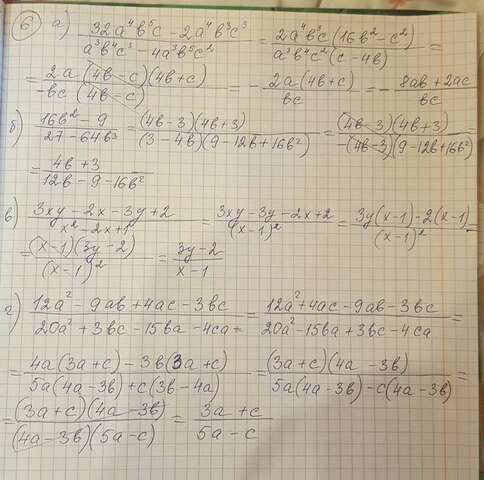 6) а) (32a⁴b⁵c - 2a⁴b³c³)/(a³b⁴c³ - 4a³b⁵c²) = (2a⁴b³c(16b² - c²))/(a³b⁴c²(c - 4b)) =
= (2a(4b - c)(4b + c))/(-bc(4b - c)) = - (2a(4b + c))/(bc) = - (8ab + 2ac)/(bc)
б) (16b² - 9)/(27 - 64b³) = ((4b - 3)(4b + 3))/((3 - 4b)(9 - 12b + 16b²)) = ((4b - 3)(4b + 3))/(-(4b - 3)(9 - 12b + 16b²)) =
= (4b + 3)/(12b - 9 - 16b²)
в) (3xy - 2x - 3y + 2)/(x² - 2x + 1) = (3xy - 3y - 2x + 2)/((x - 1)²) = (3y(x - 1) - 2(x - 1))/((x - 1)²) =
= ((x - 1)(3y - 2))/((x - 1)²) = (3y - 2)/(x - 1)
г) (12a² - 9ab + 4ac - 3bc)/(20a² + 3bc - 15ba - 4ca) = (12a² + 4ac - 9ab - 3bc)/(20a² - 15ba + 3bc - 4ca) =
= (4a(3a + c) - 3b(3a + c))/(5a(4a - 3b) + c(3b - 4a)) = ((3a + c)(4a - 3b))/(5a(4a - 3b) - c(4a - 3b)) =
= ((3a + c)(4a - 3b))/((4a - 3b)(5a - c)) = (3a + c)/(5a - c)